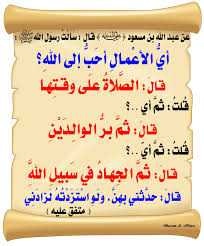 عن عبد الله بن مسعود (رضي الله عنه) قال : سألت رسول الله ﷺ :
أيُّ الأعْمال أحَبُّ إلى الله؟
قال : الصَّلاةُ على وقْـتـهَا
قلتُ : ثمَّ أي ..؟
قال: ثمَّ برُّ الوالدَيْن
قلت: ثمَّ أي ..؟
قال: ثمَّ الجهادُ في سَبيل اللَّه
قال: حدَّثني بهنَّ، ولو استزدْتُه لزادَني
( متفق عليه )